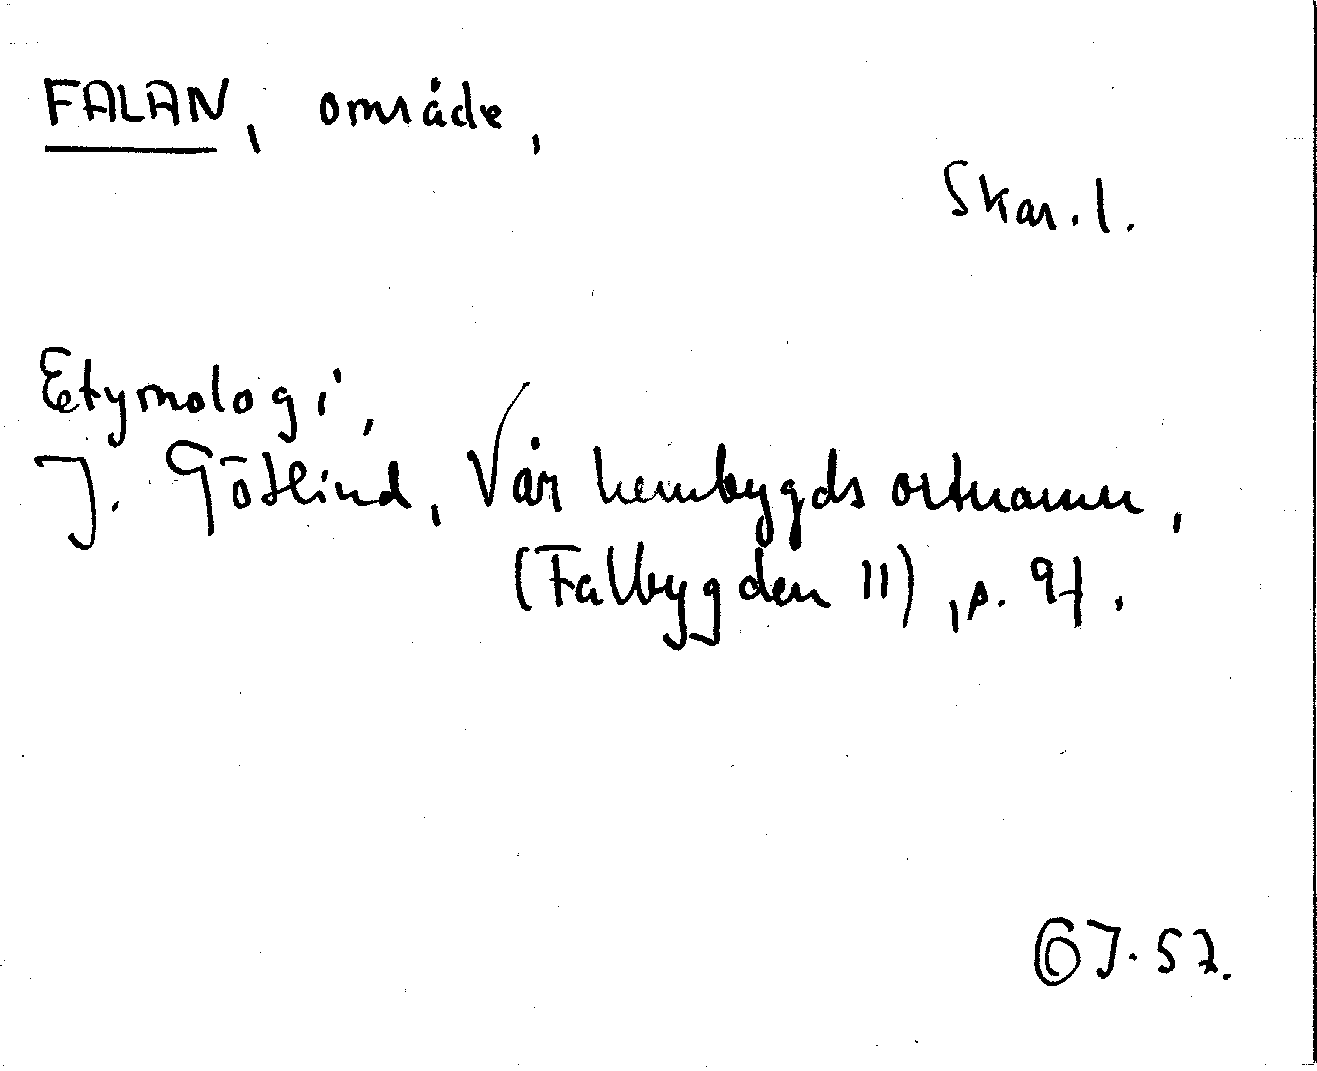 FALAN, område,
Skar. l.
Etymologi,
J. Götlind, Vår hembygds ortnamn,
(Falbygden 11), p. 9f.
GJ. 57.